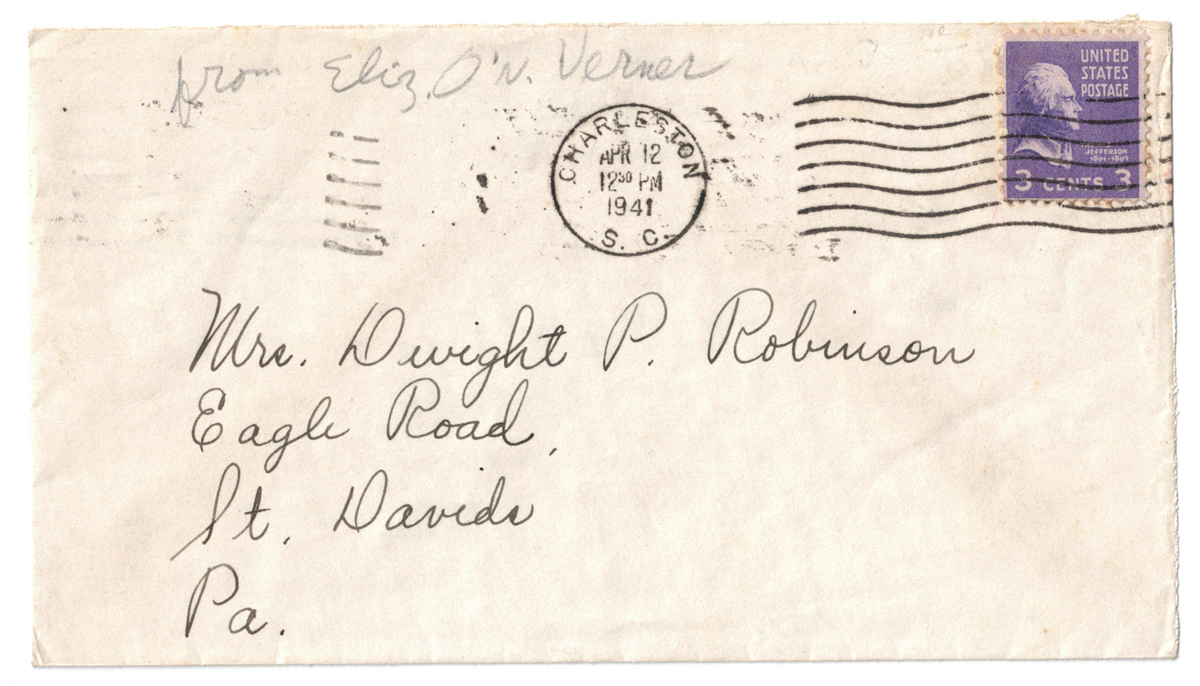 from Eliz. O'N. Verner
UNITED
STATES
POSTAGE
JEFFERSON
1801-1809
3 CENTS 3
CHARLESTON
APR 12
12³⁰ PM
1941
S. C.
Mrs. Dwight P. Robinson
Eagle Road,
St. Davids
Pa.